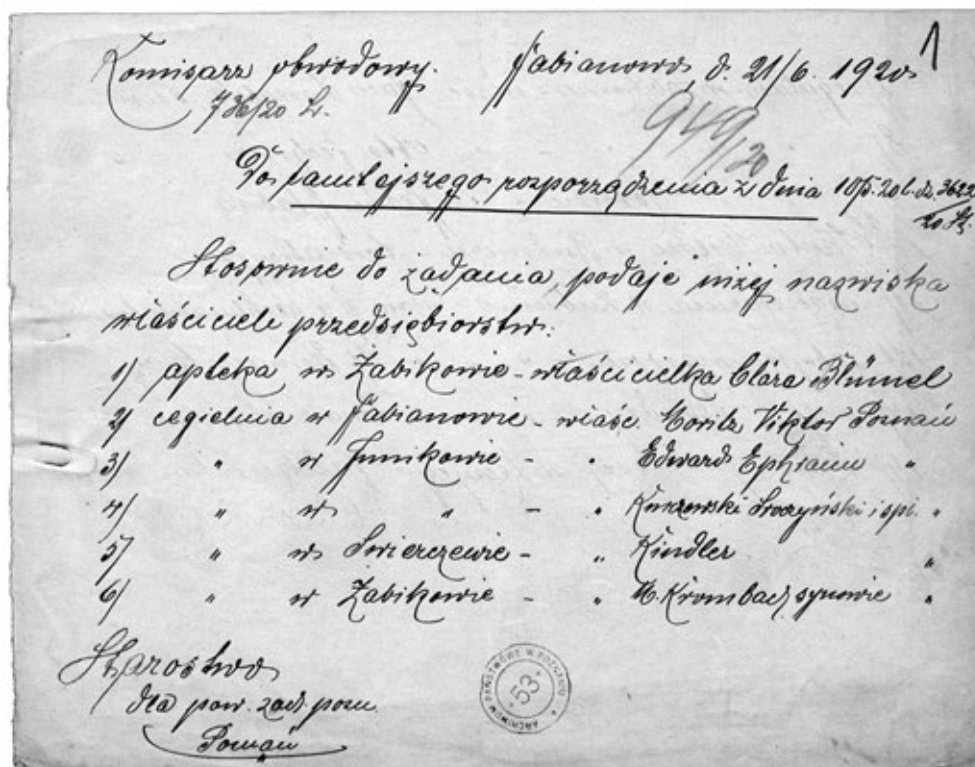 1
Komisarz obwodowy. Fabianowo, d. 21/6. 1920
736/20 Lr.
949/20
Do tamtejszego rozporządzenia z dnia 10/5. 20 l. dz. 3622/20 Sz.
Stosownie do żądania, podaję niżej nazwiska
właścicieli przedsiębiorstw:
1) apteka w Żabikowie - właścicielka Clära Blümel
2) cegielnia w Fabianowie - właśc. Moritz Viktor Poznań
3) " w Junikowie - " Edward Ephraim "
4) " w " - " i sp. "
5) " w Swierczewie - " Kindler "
6) " w Żabikowie - " M. Krombach synowie "
Starostwo
dla pow. zach. pozn.
Poznań
ARCHIWUM PAŃSTWOWE W POZNANIU
53.